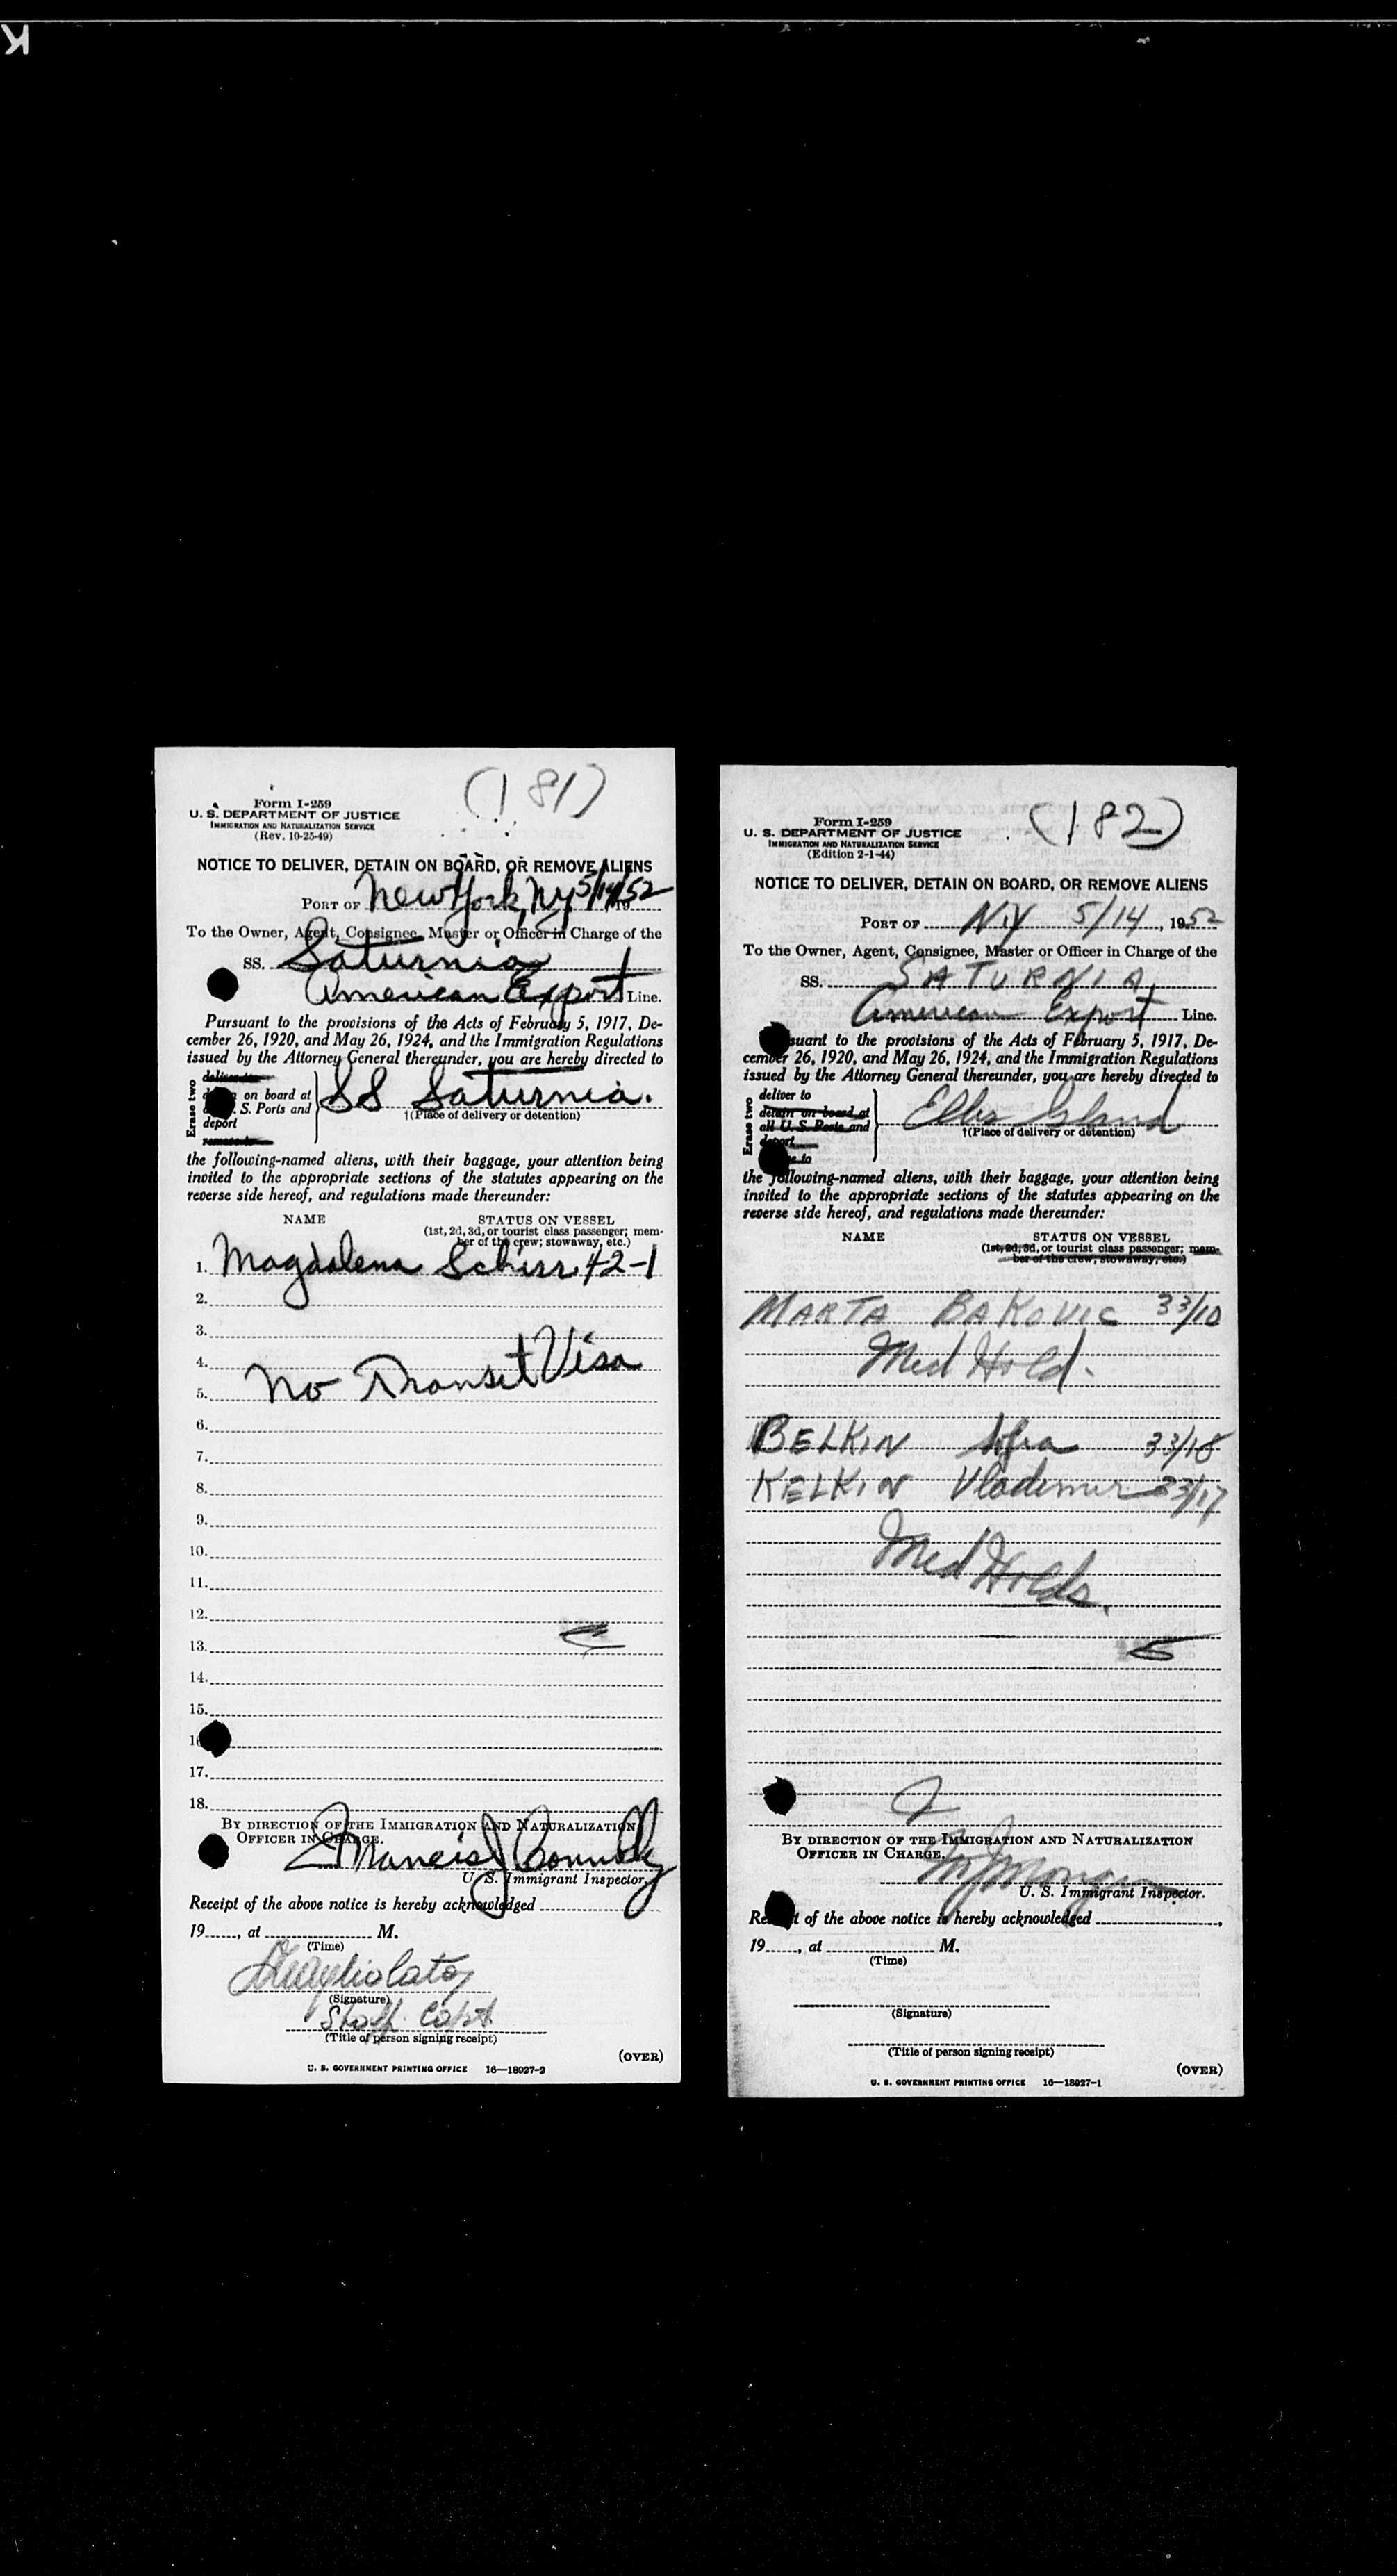 (181)
Form I-259
U. S. DEPARTMENT OF JUSTICE
IMMIGRATION AND NATURALIZATION SERVICE
(Rev. 10-25-49)
NOTICE TO DELIVER, DETAIN ON BOARD, OR REMOVE ALIENS
PORT OF New York, NY 5/14/52, 19
To the Owner, Agent, Consignee, Master or Officer in Charge of the
SS. Saturnia
American Export Line.
Pursuant to the provisions of the Acts of February 5, 1917, De-
cember 26, 1920, and May 26, 1924, and the Immigration Regulations
issued by the Attorney General thereunder, you are hereby directed to
Erase two
deliver to
on board at
S. Ports and
deport
remove to
SS Saturnia.
†(Place of delivery or detention)
the following-named aliens, with their baggage, your attention being
invited to the appropriate sections of the statutes appearing on the
reverse side hereof, and regulations made thereunder:
NAME STATUS ON VESSEL
(1st, 2d, 3d, or tourist class passenger; mem-
ber of the crew; stowaway, etc.)
1. Magdalena Schirr 42-1
2.
3.
4. No Transit Visa
5.
6.
7.
8.
9.
10.
11.
12.
13.
14.
15.
16
17.
18.
BY DIRECTION OF THE IMMIGRATION AND NATURALIZATION
OFFICER IN CHARGE.
Francis J Connolly
U. S. Immigrant Inspector.
Receipt of the above notice is hereby acknowledged
19, at M.
(Time)
(Signature)
Staff Capt
(Title of person signing receipt)
(OVER)
U. S. GOVERNMENT PRINTING OFFICE 16—18027-2
(182)
Form I-259
U. S. DEPARTMENT OF JUSTICE
IMMIGRATION AND NATURALIZATION SERVICE
(Edition 2-1-44)
NOTICE TO DELIVER, DETAIN ON BOARD, OR REMOVE ALIENS
PORT OF N.Y 5/14, 1952
To the Owner, Agent, Consignee, Master or Officer in Charge of the
SS. SATURNIA
American Export Line.
suant to the provisions of the Acts of February 5, 1917, De-
cember 26, 1920, and May 26, 1924, and the Immigration Regulations
issued by the Attorney General thereunder, you are hereby directed to
Erase two
deliver to
detain on board at
all U. S. Ports and
deport
to
Ellis Island
†(Place of delivery or detention)
the following-named aliens, with their baggage, your attention being
invited to the appropriate sections of the statutes appearing on the
reverse side hereof, and regulations made thereunder:
NAME STATUS ON VESSEL
(1st, 2d, 3d, or tourist class passenger; mem-
ber of the crew; stowaway, etc.)
MARTA BAKOVIC 33/10
Med Hold.
BELKIN 33/18
KELKIN Vlademir 33/17
Med Holds.
BY DIRECTION OF THE IMMIGRATION AND NATURALIZATION
OFFICER IN CHARGE.
U. S. Immigrant Inspector.
Receipt of the above notice is hereby acknowledged ,
19, at M.
(Time)
(Signature)
(Title of person signing receipt)
(OVER)
U. S. GOVERNMENT PRINTING OFFICE 16—18027-1